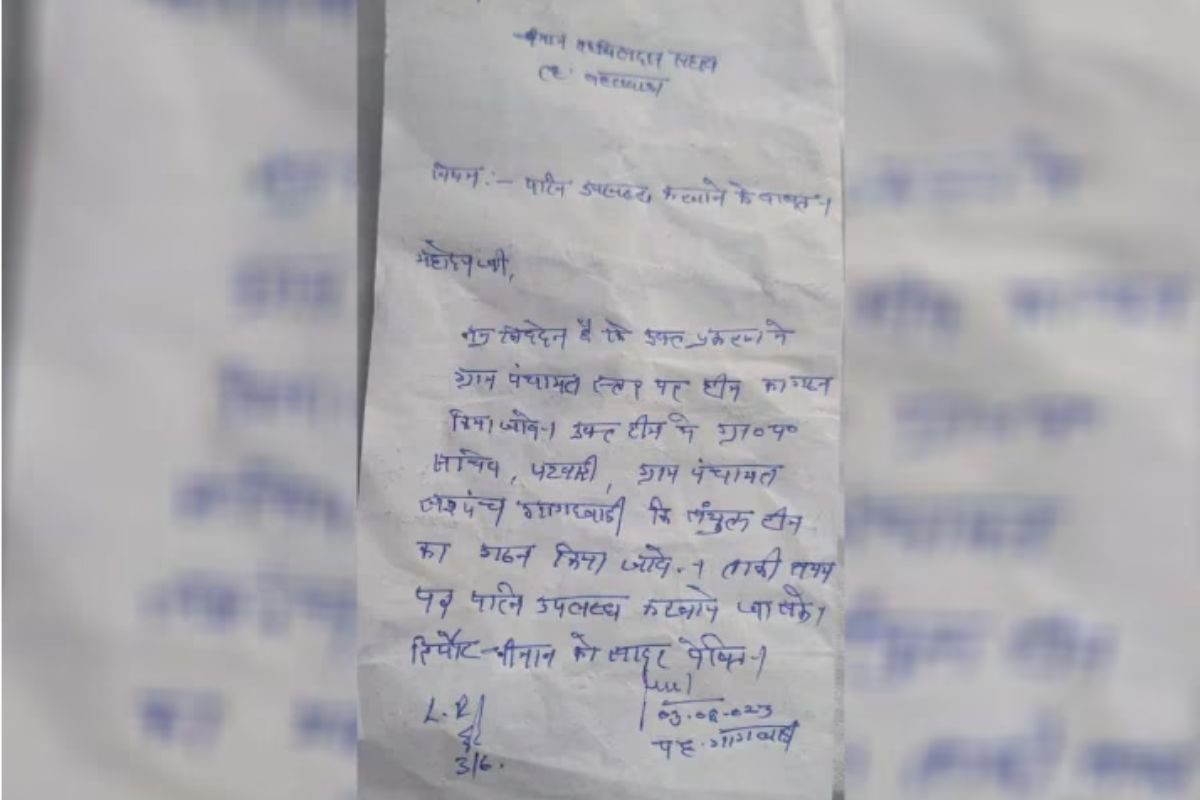 श्रीमान तहसिलदार साहब
तह. महवा
विषय:- पत्नि उपलब्ध करवाने के बाबत।
महोदय जी,
नम्र निवेदन है कि उक्त प्रकरण मे
ग्राम पंचायत स्तर पर टीम का गठन
किया जावे। उक्त टीम मे ग्रा०प०
सचिव, पटवारी, ग्राम पंचायत
सरपंच गांगदवाडी कि संयुक्त टीम
का गठन किया जावे। ताकी समय
पर पत्नि उपलब्ध करवायी जा सके।
रिपोर्ट श्रीमान को सादर प्रेषित।
L.R.
3/6.
03.06.023
पह. गांगदवाडी